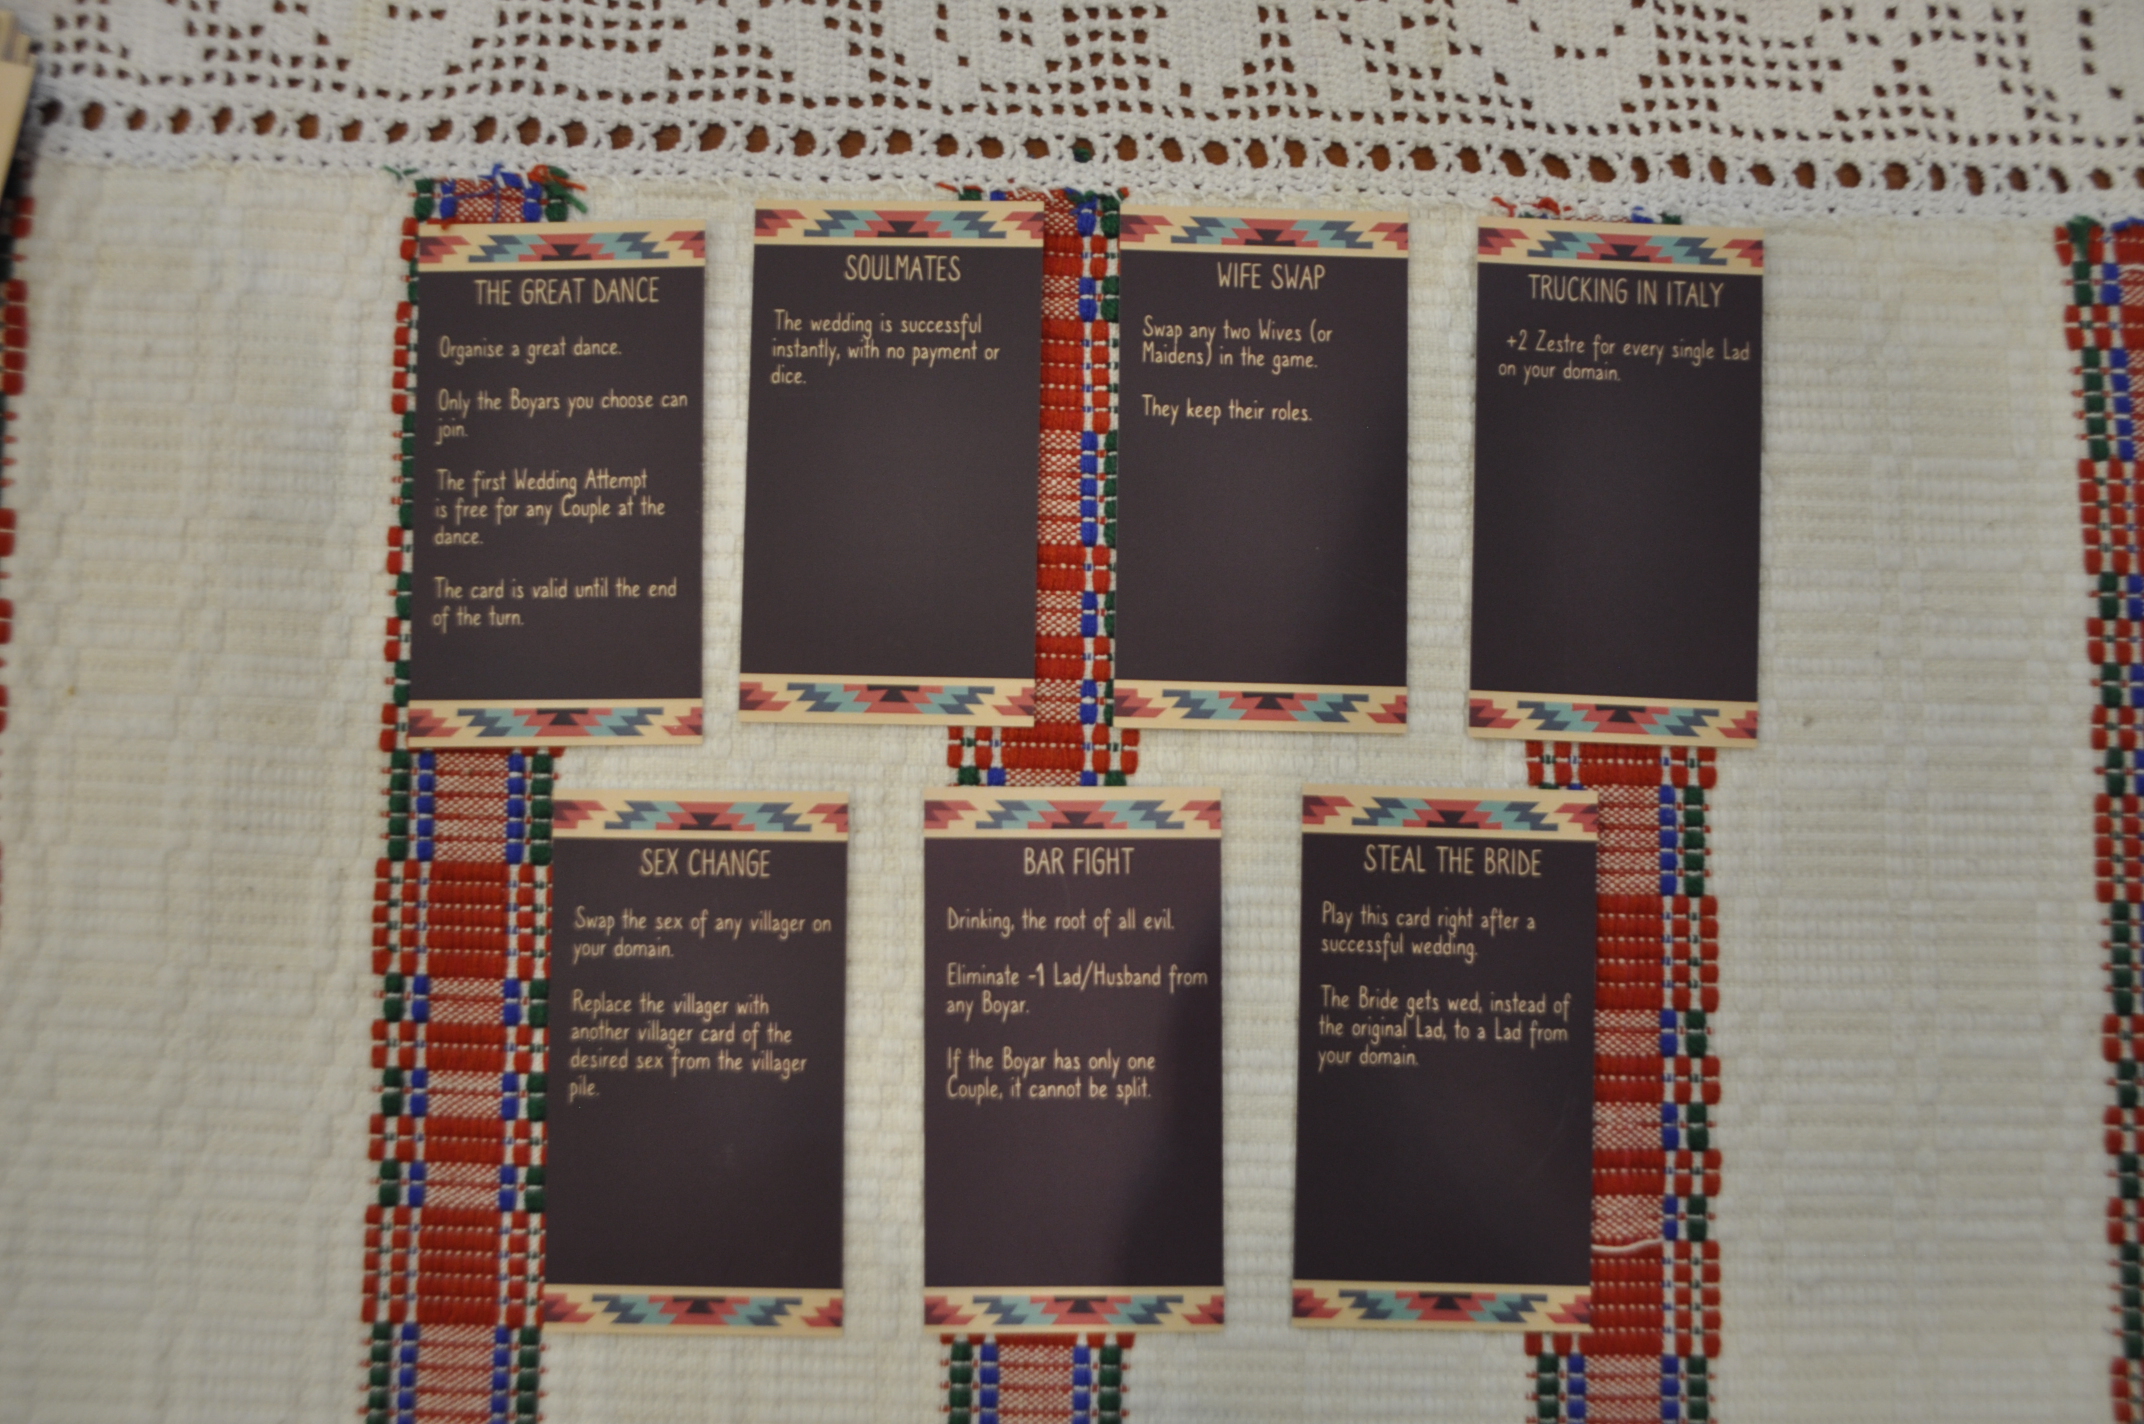 THE GREAT DANCE
Organise a great dance.
Only the Boyars you choose can
join.
The first Wedding Attempt
is free for any Couple at the
dance.
The card is valid until the end
of the turn.
SOULMATES
The wedding is successful
instantly, with no payment or
dice.
WIFE SWAP
Swap any two Wives (or
Maidens) in the game.
They keep their roles.
TRUCKING IN ITALY
+2 Zestre for every single Lad
on your domain.
SEX CHANGE
Swap the sex of any villager on
your domain.
Replace the villager with
another villager card of the
desired sex from the villager
pile.
BAR FIGHT
Drinking, the root of all evil.
Eliminate -1 Lad/Husband from
any Boyar.
If the Boyar has only one
Couple, it cannot be split.
STEAL THE BRIDE
Play this card right after a
successful wedding.
The Bride gets wed, instead of
the original Lad, to a Lad from
your domain.